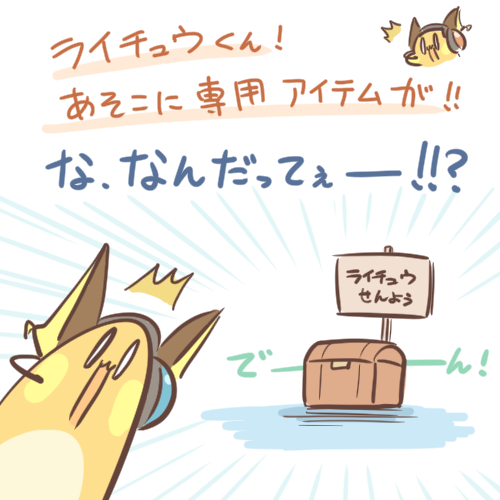 ライチュウくん!
あそこに専用アイテムが!!
な、なんだってぇー!!?
ライチュウ
せんよう
でーん!